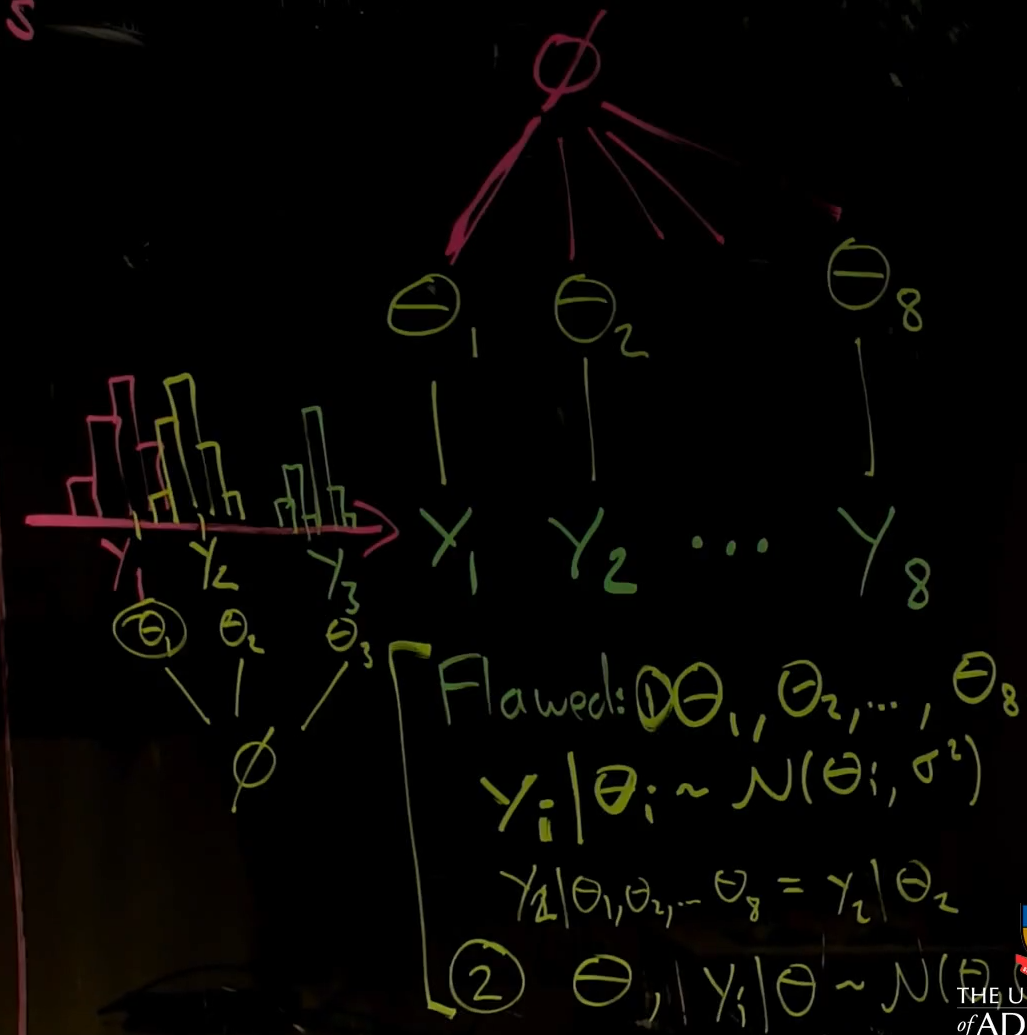 S
ϕ
Θ₁ Θ₂ Θ₈
Y₁ Y₂ ... Y₈
Y₁ Y₂ Y₃
θ₁ θ₂ θ₃
ϕ
Flawed: ① θ₁, θ₂, ..., θ₈
Yᵢ | θᵢ ~ N(θᵢ, σ²)
| θ₁, θ₂, ... θ₈ = Y₂ | θ₂
② θ, | Yᵢ | θ ~ N(θ,
THE U
of AD